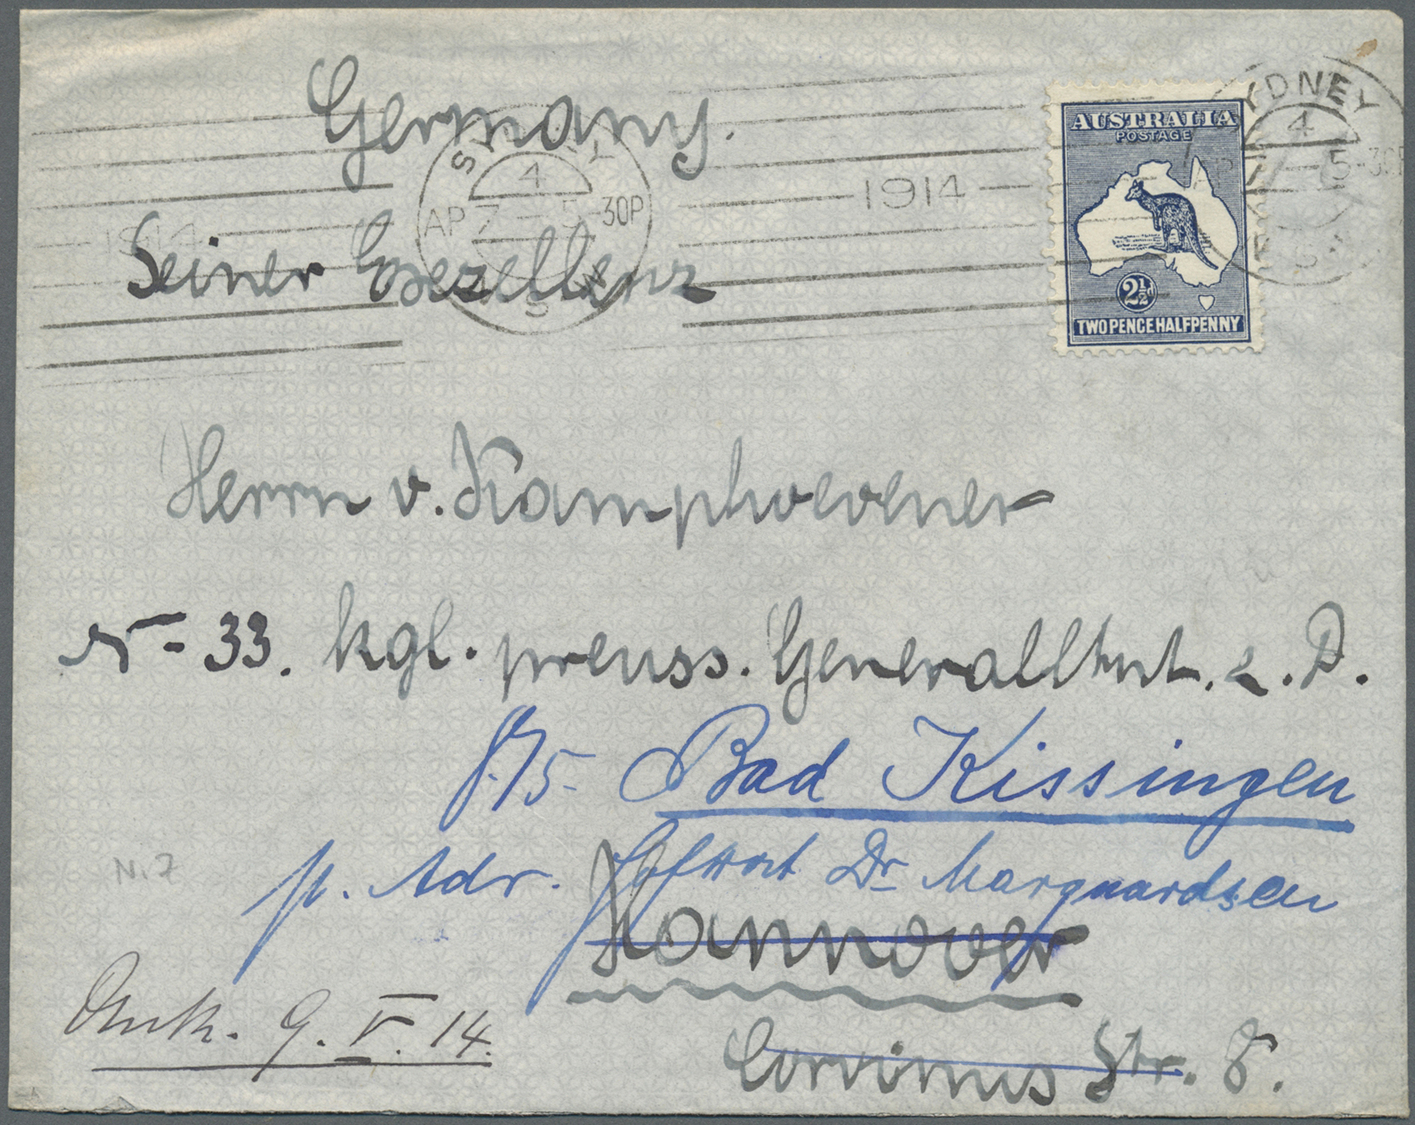 Germany.
SYDNEY
4
AP 7 5-30P
N.S.W
1914
1914
SYDNEY
4
AP 7 5-30P
N.S.W
AUSTRALIA
POSTAGE
2½d
TWO PENCE HALFPENNY
Seiner Exzellenz
Herrn v. Kamphoevener
No 33. kgl. preuss. Generalltnt. z. D.
8/5- Bad Kissingen
p. Adr. Hofrat Dr Marquardsen
N. 7
Hannover
Ank. 9. V. 14.
Corvinus Str. 8.